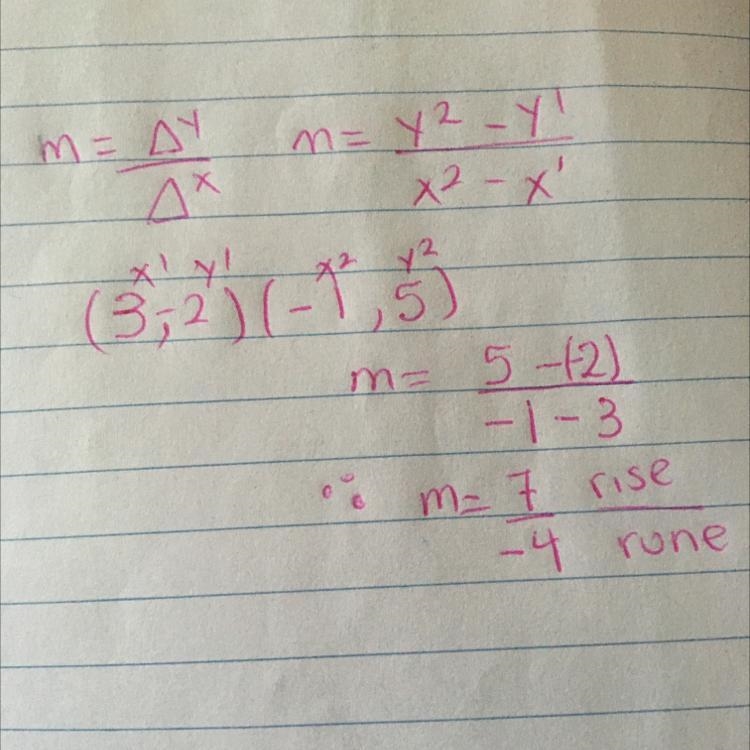 m = Δy/Δx m = y² - y¹ / x² - x¹
x¹ y¹ x² y²
(3,-2)(-1,5)
m = 5 -(-2) / -1 - 3
∴ m = 7/-4 rise/rune